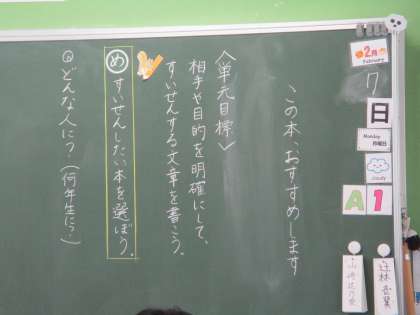 この本、おすすめします
〈単元目標〉
相手や目的を明確にして、
すいせんする文章を書こう。
めすいせんしたい本を選ぼう。
どんな人に?(何年生に?)
2月
February
7
日
Monday
月曜日
cloudy
A1